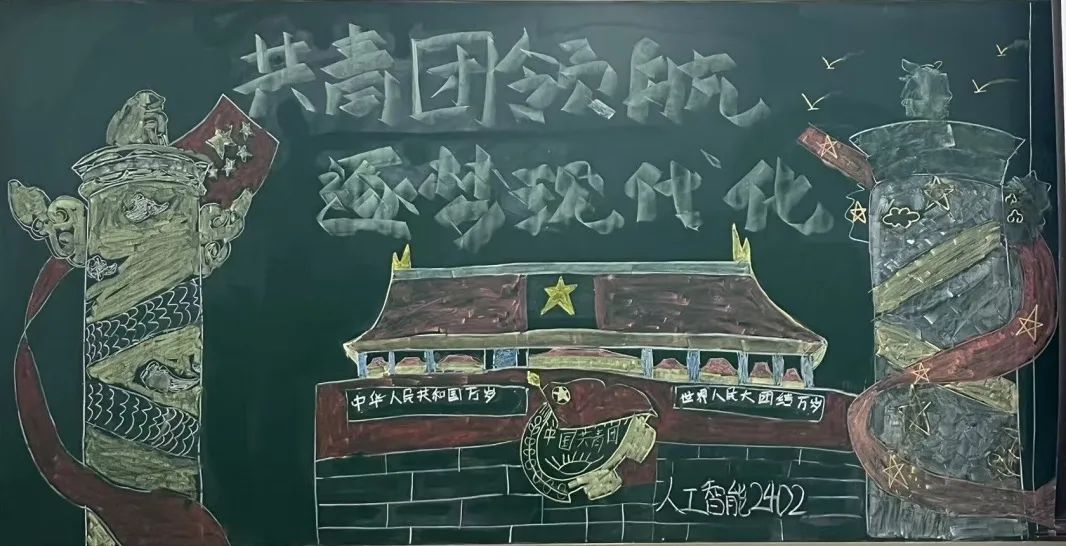 共青团领航
逐梦现代化
中华人民共和国万岁
世界人民大团结万岁
中国共青团
人工智能2402